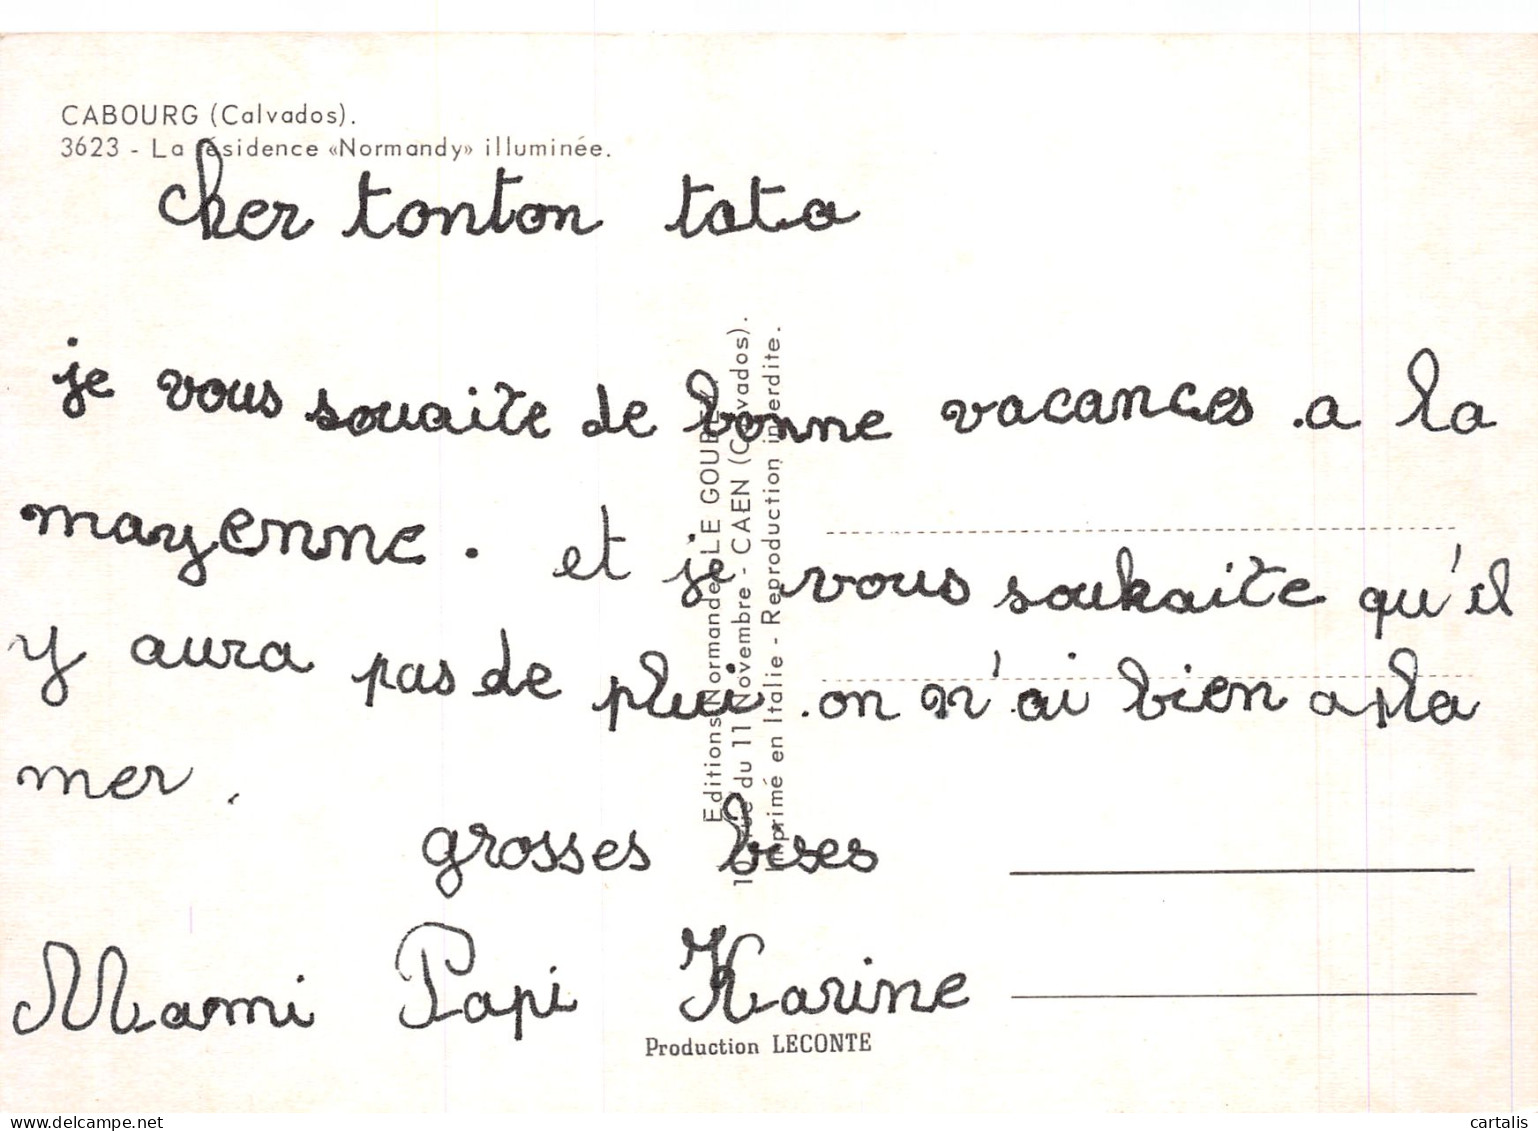 CABOURG (Calvados).
3623 - La résidence «Normandy» illuminée.
cher tonton tata
je vous souaite de bonne vacances .a la
mayenne. et je vous souhaite qu'il
y aura pas de plui .on n'ai bien a la
mer.
grosses bises
Mami Papi Karine
Editions Normandes LE GOUBEY
du 11 Novembre - CAEN (Calvados).
Imprimé en Italie - Reproduction interdite.
Production LECONTE
cartalis